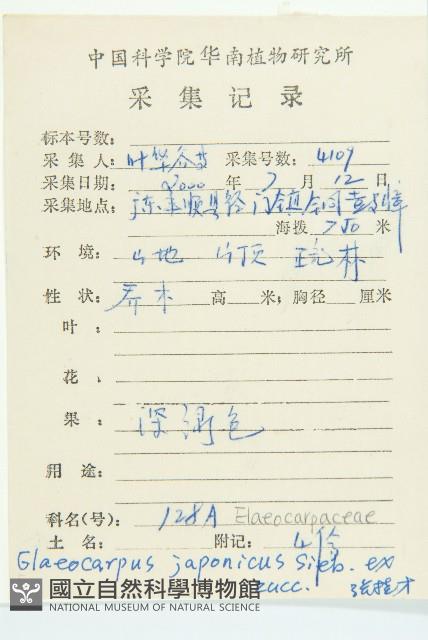 中国科学院华南植物研究所
采集记录
标本号数:
采集人:叶华谷等 采集号数:4109
采集日期:2000年7月12日
采集地点:
海拨 750 米
环境:山地 山顶 疏林
性状:乔木 高 米;胸径 厘米
叶:
花、
果:深绿色
用途:
科名(号):128A Elaeocarpaceae
土名: 附记:4份
Glaeocarpus japonicus Sieb. ex
zucc. 张桂才
國立自然科學博物館
NATIONAL MUSEUM OF NATURAL SCIENCE